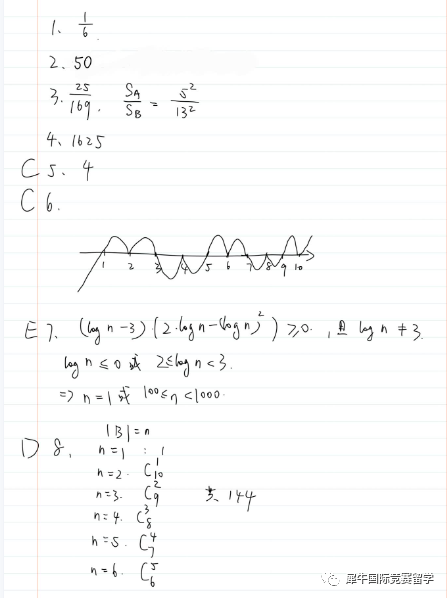 1、 1/6
2、50
3、 25/169 . S_A/S_B = 5²/13²
4、1625
C 5、4
C 6、
1 2 3 4 5 6 7 8 9 10
E 7、 (log n -3)(2·log n-(log n)²) ≥0. ,且 log n ≠ 3.
log n ≤ 0 或 2≤log n<3.
⇒ n=1 或 100≤n<1000.
|B|=n
D 8、 n=1 : 1
n=2. C₁₀¹
n=3. C₉² 共 144
n=4. C₈³
n=5. C₇⁴
n=6. C₆⁵
犀牛国际竞赛留学